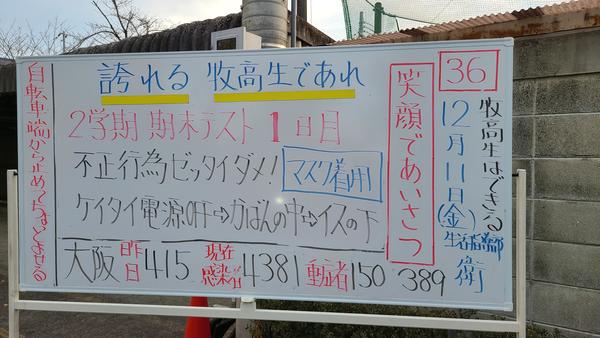 36
牧高生はできる
12月11日(金)
生活指導部
衛
笑顔であいさつ
誇れる 牧高生であれ
2学期 期末テスト 1日目
不正行為ゼッタイダメ!
マスク着用
ケイタイ電源OFF→かばんの中→イスの下
大阪 昨日 415 現在感染者 4381 重症者 150 389
自転車 端から止めつめてとめる